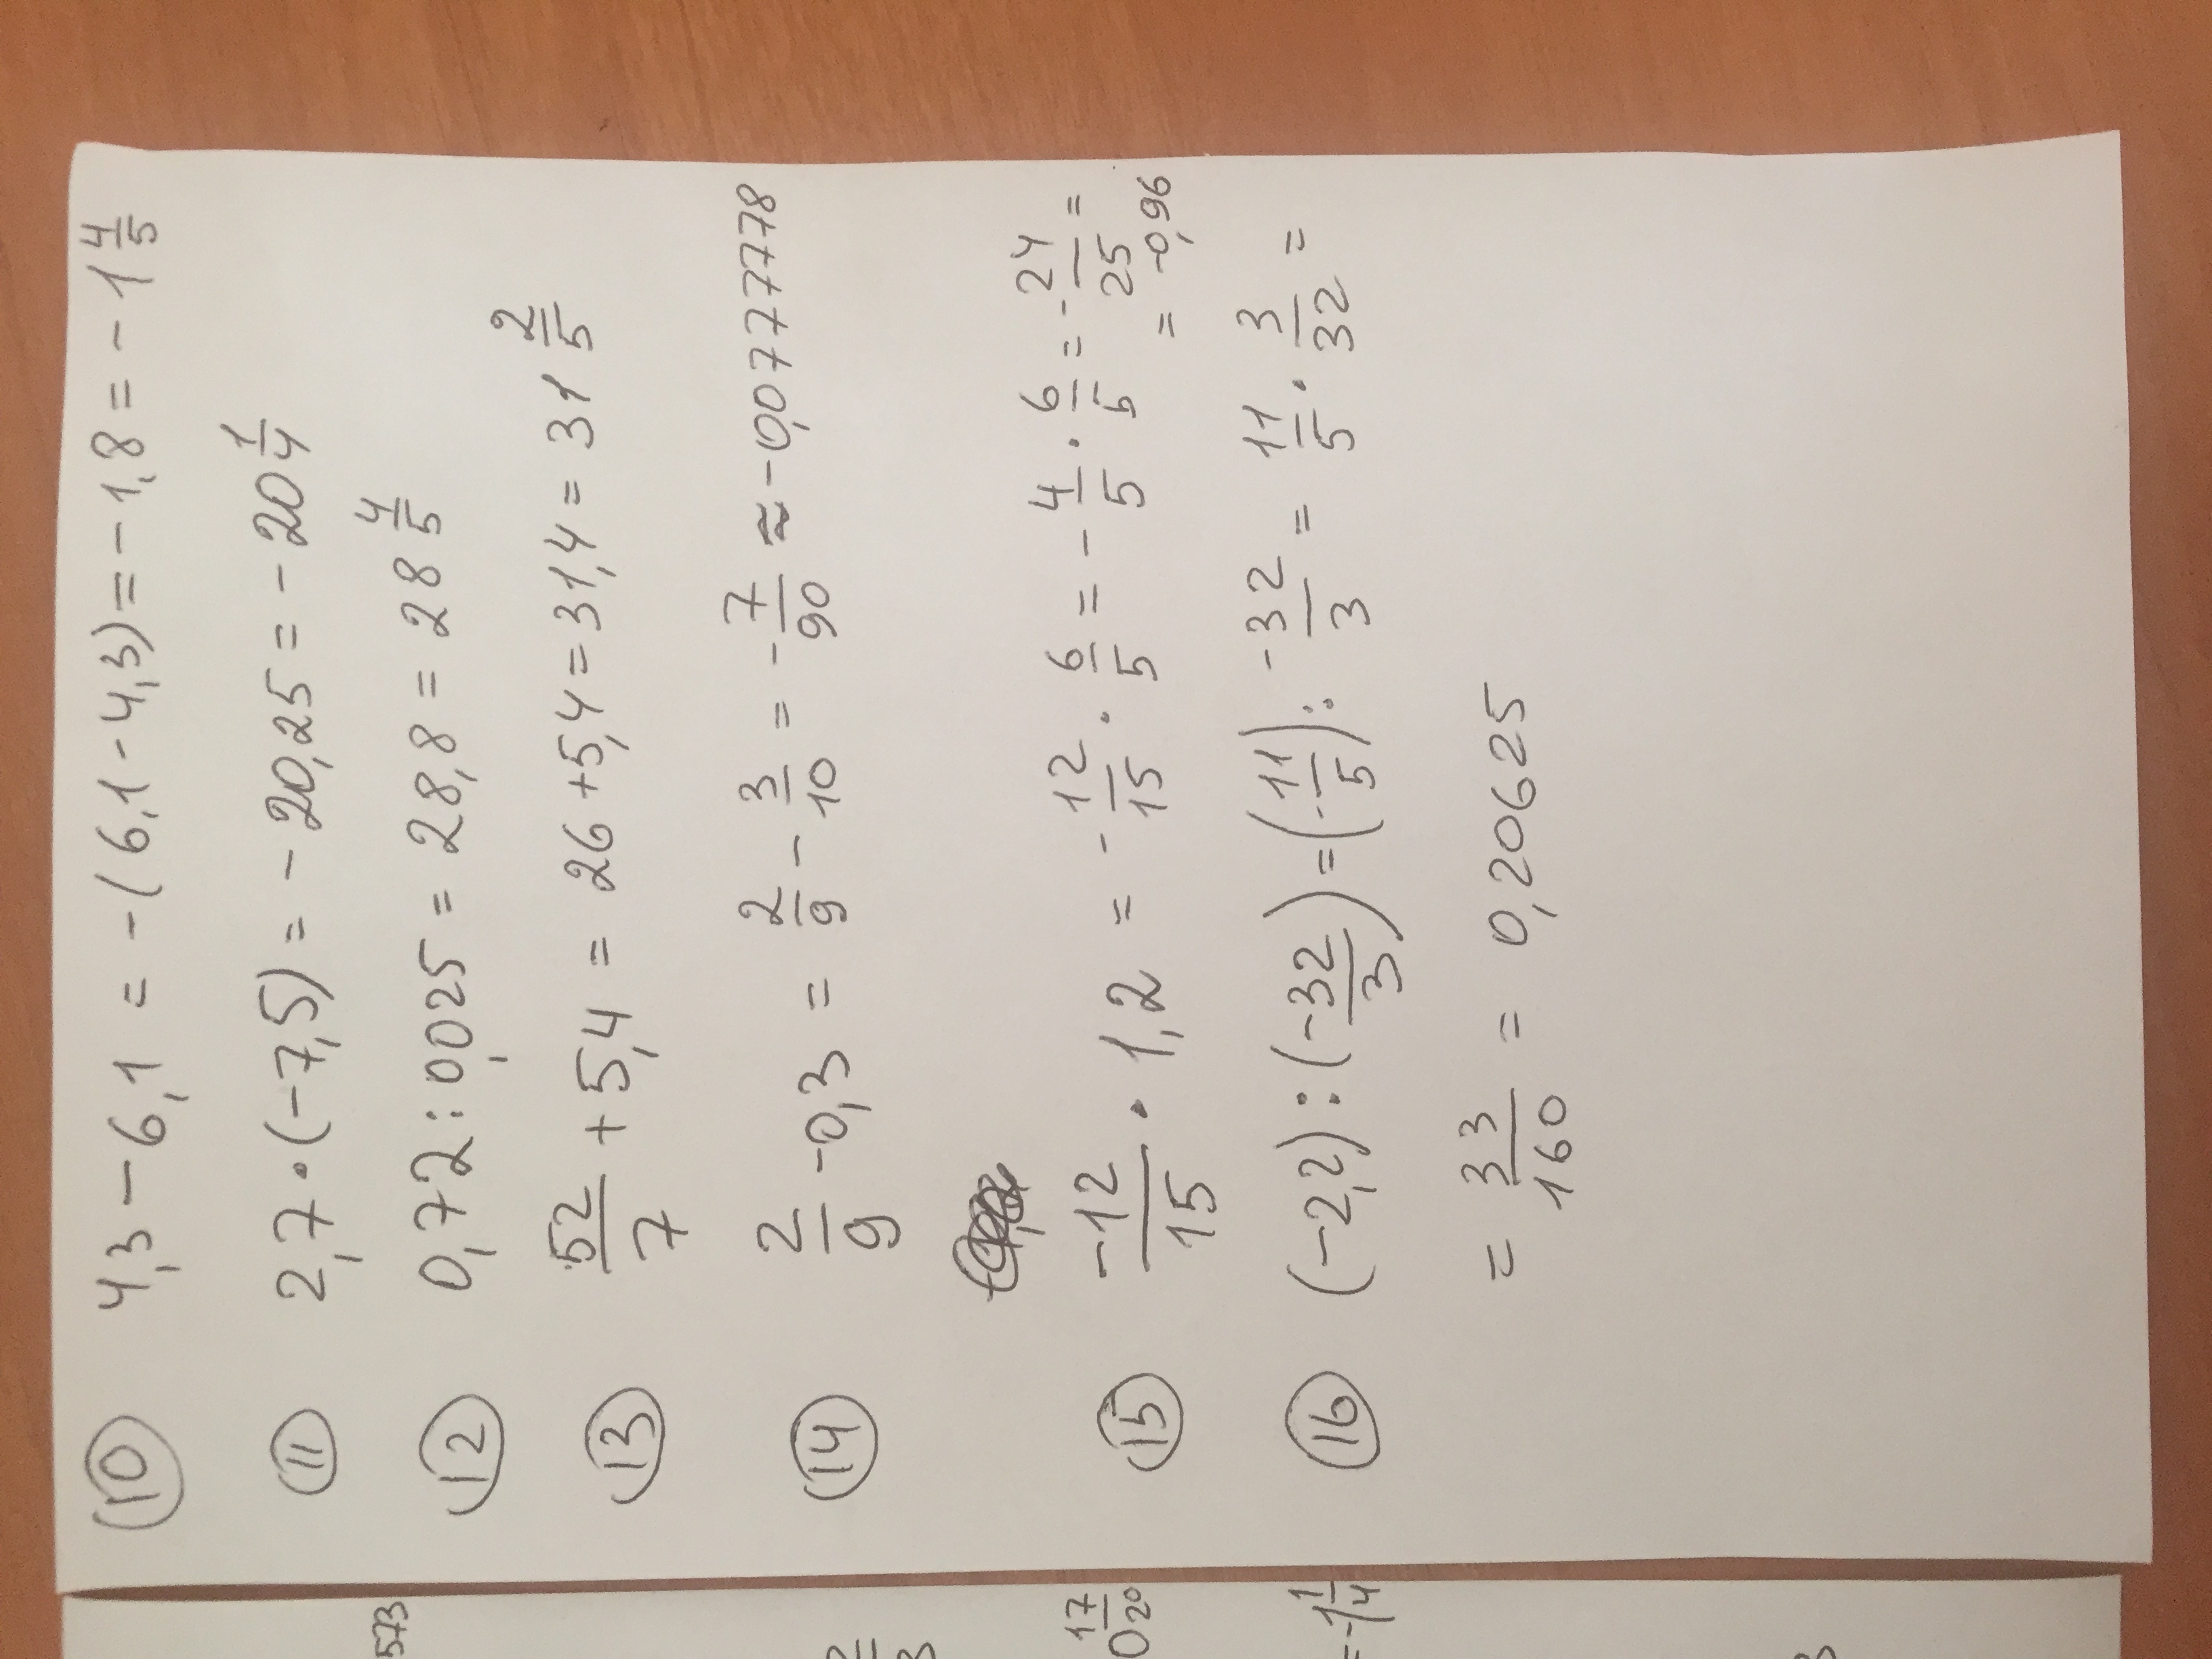 10 4,3 - 6,1 = -(6,1 - 4,3) = -1,8 = -1 4/5
11 2,7 · (-7,5) = -20,25 = -20 1/4
12 0,72 : 0,025 = 28,8 = 28 4/5
13 52/7 + 5,4 = 26 + 5,4 = 31,4 = 31 2/5
14 2/9 - 0,3 = 2/9 - 3/10 = -7/90 ≈ -0,0777778
15 -12/15 · 1,2 = -12/15 · 6/5 = -4/5 · 6/5 = -24/25 =
= -0,96
16 (-2,2) : (-32/3) = (-11/5) : -32/3 = 11/5 · 3/32 =
= 33/160 = 0,20625
573
17/20
= -1 1/4